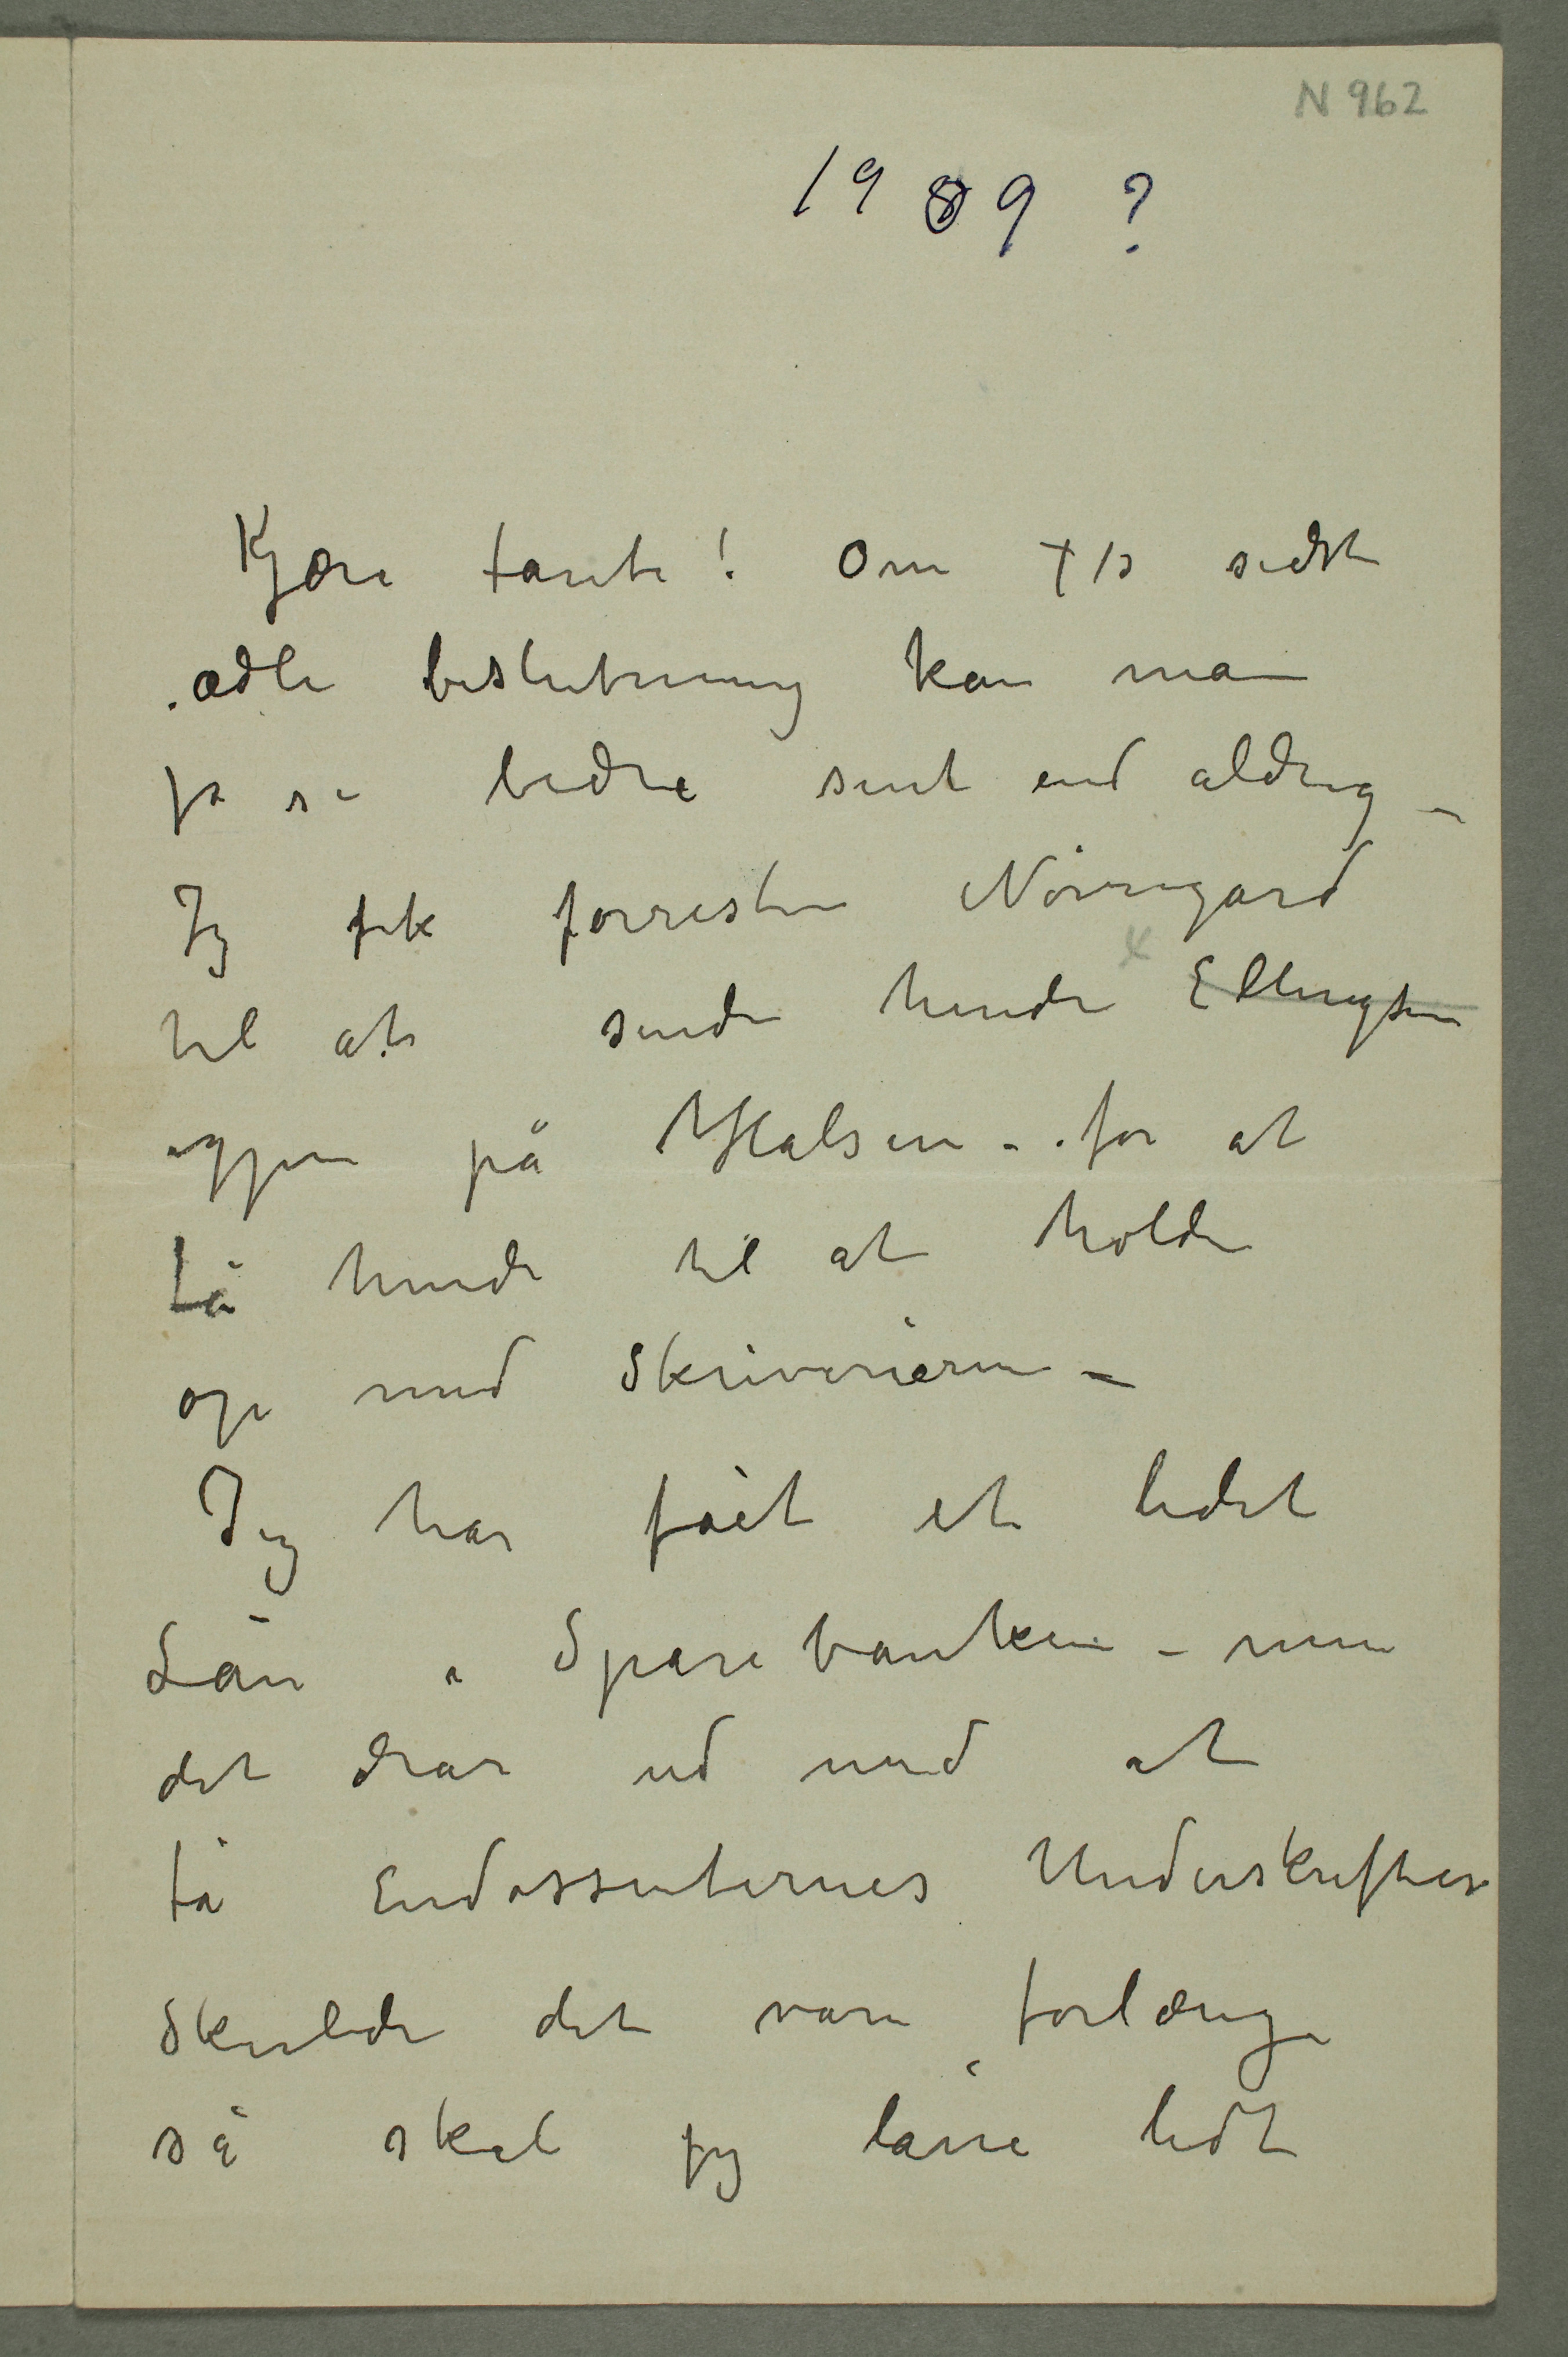 N 962
1989 ?
Kjære tante! Om ✝s sidste
ædle beslutning kan man
jo si bedre sent end aldrig –
Jeg fik forresten Nörregård
til at sende hende Ellingsen
igjen på Halsen – for at
få hende til at holde
op med Skriverierne –
Jeg har fåèt et lidet
Lån i Sparebanken – men
det drar ud med at
få Endossenternes Underskrifter
Skulde det vare forlænge
så skal jeg låne lidt